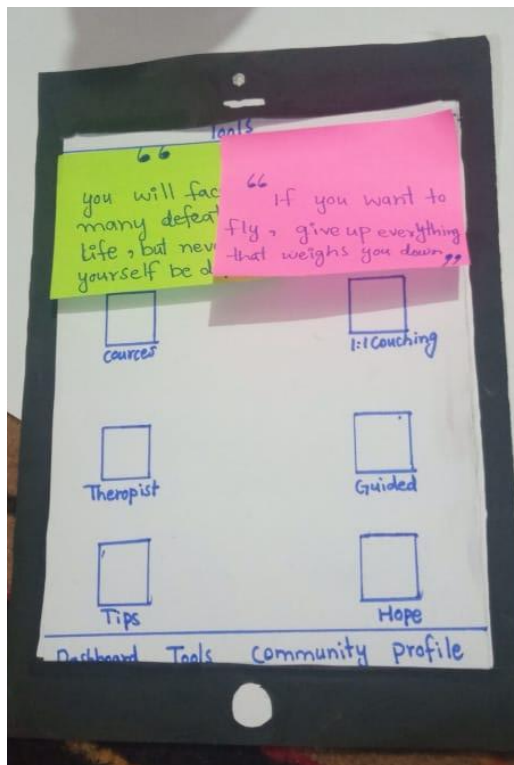 Tools
“
you will fac
many defeat
Life, but nev
yourself be d
“
If you want to
fly, give up everything
that weighs you down,,
cources
1:1 Couching
Theropist
Guided
Tips
Hope
Dashboard Tools Community profile